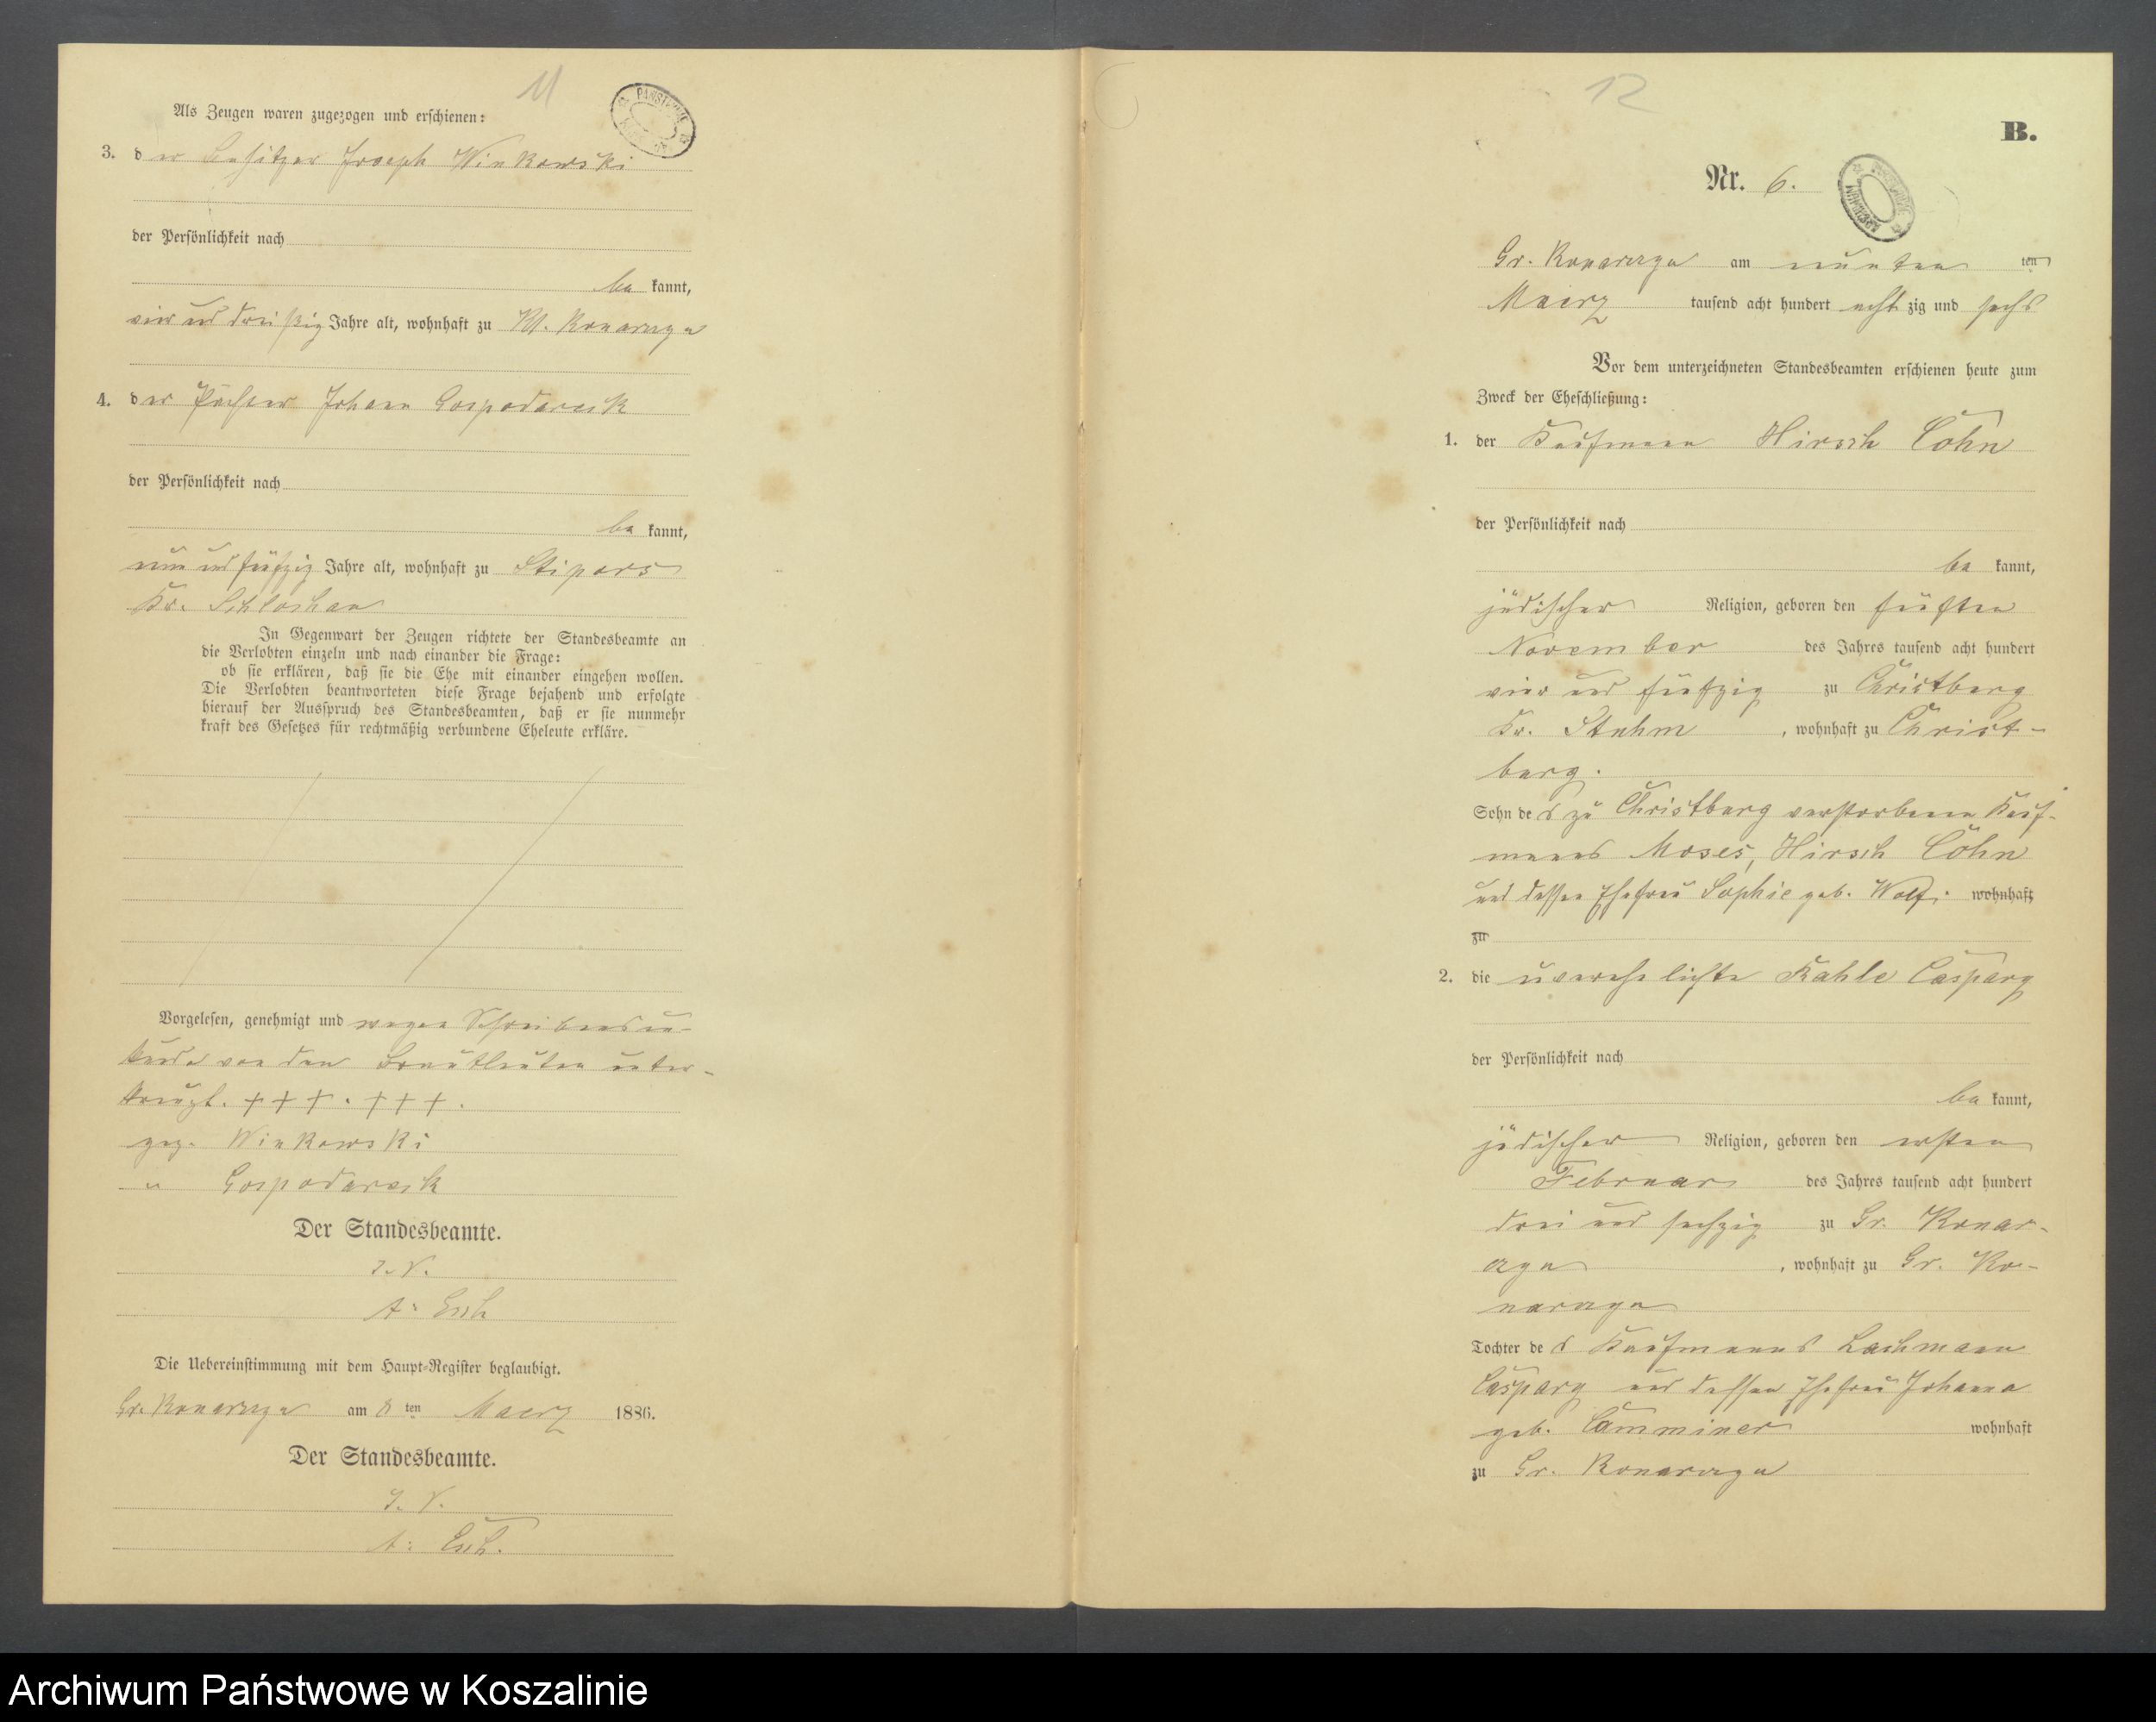 11
PAŃSTWOWE
Als Zeugen waren zugezogen und erschienen:
3. der Besitzer Joseph Winkowski
der Persönlichkeit nach
be kannt,
vier und dreißig Jahre alt, wohnhaft zu Kl. Konarczyn
4. der Pächter Johann Gospodareck
der Persönlichkeit nach
be kannt,
neun und fünfzig Jahre alt, wohnhaft zu Stipors
Kr. Schlochau
In Gegenwart der Zeugen richtete der Standesbeamte an
die Verlobten einzeln und nach einander die Frage:
ob sie erklären, daß sie die Ehe mit einander eingehen wollen.
Die Verlobten beantworteten diese Frage bejahend und erfolgte
hierauf der Ausspruch des Standesbeamten, daß er sie nunmehr
kraft des Gesetzes für rechtmäßig verbundene Eheleute erkläre.
Vorgelesen, genehmigt und wegen Schreibensun-
kunde von den Brautleuten unter-
kreuzt. +++. +++.
gez. Winkowski
" Gospodareck
Der Standesbeamte.
I. V.
A. Esch
Die Uebereinstimmung mit dem Haupt-Register beglaubigt.
Gr. Konarczyn am 8 ten Maerz 1886.
Der Standesbeamte.
I. V.
A. Esch.
12
B.
Nr. 6.
PAŃSTWOWE ARCHIWUM
Gr. Konarczyn am neunten ten
Maerz tausend acht hundert acht zig und sechs
Vor dem unterzeichneten Standesbeamten erschienen heute zum
Zweck der Eheschließung:
1. der Kaufmann Hirsch Cohn
der Persönlichkeit nach
be kannt,
jüdischer Religion, geboren den fünften
November des Jahres tausend acht hundert
vier und fünfzig zu Christburg
Kr. Stuhm, wohnhaft zu Christ-
burg.
Sohn de s zu Christburg verstorbenen Kauf-
manns Moses, Hirsch Cohn
und dessen Ehefrau Sophie geb. Wolf. wohnhaft
zu
2. die unverehelichte Rahle Caspary
der Persönlichkeit nach
be kannt,
jüdischer Religion, geboren den ersten
Februar des Jahres tausend acht hundert
drei und sechzig zu Gr. Konar-
czyn, wohnhaft zu Gr. Ko-
narczyn
Tochter de s Kaufmanns Lachmann
Caspary und dessen Ehefrau Johanna
geb. Camminer wohnhaft
zu Gr. Konarczyn
Archiwum Państwowe w Koszalinie